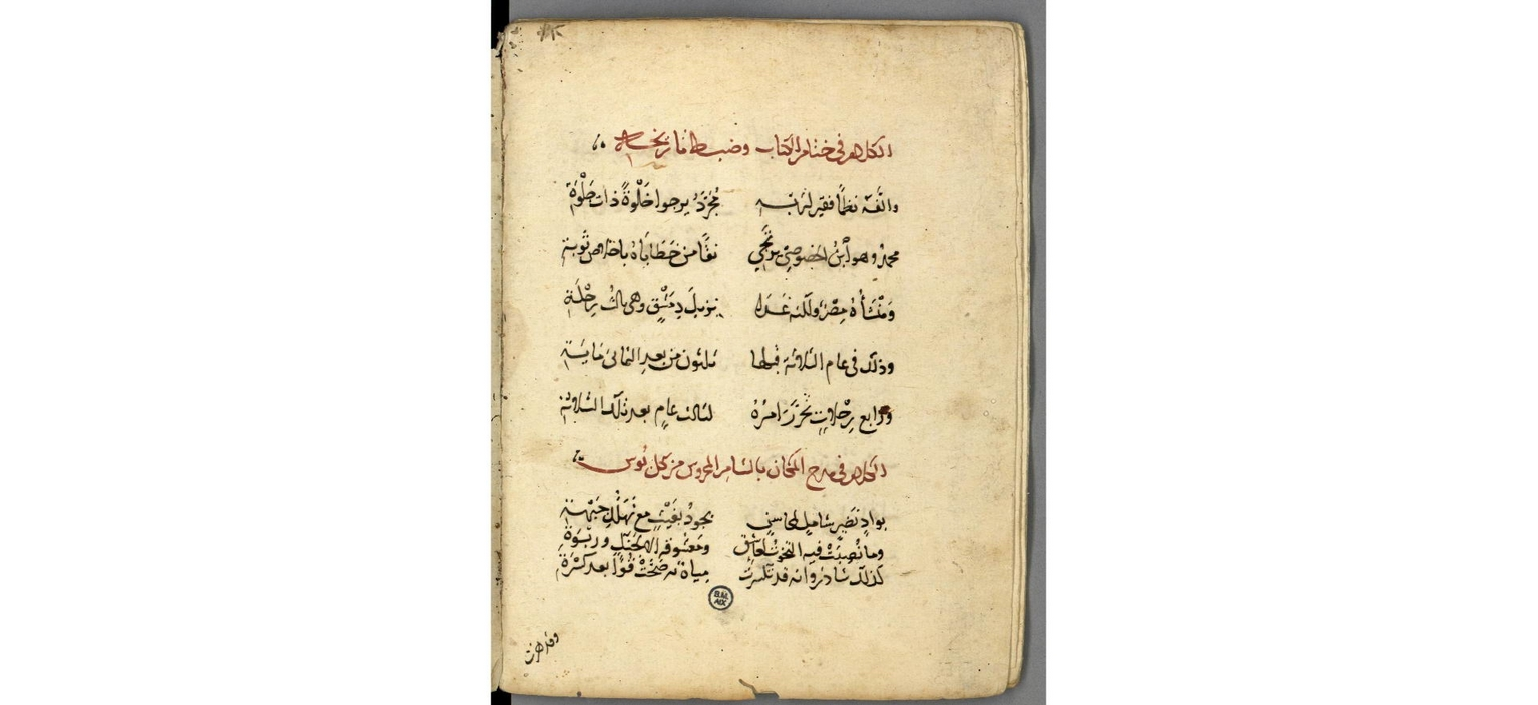 الكلام في ختام الكتاب وضبط تاريخه
والفه نظما فقير لربه مجرد يرجوا خلوة ذات جلوة
محمد وهو ابن الخصوصي يرتجي نقا من خطاياه باخلاص توبة
ومنشأه مصر ولكنه غدا نزيل دمشق وهي ثالث رحلة
وذلك في عام الثلاثة قبلها ثلثون من بعد الثماني ماية
ورابع رحلات تحرر امره لثالث عام بعد تلك الثلاثة
الكلام في مدح المكان بالشام المحروس من كل بوس
بواد نضير شامل لمحاسن يجود بغيث مع تهلل جبهة
وما نصبت فيه لعاشق ومعشوقه الجنك وربوة
كذلك شادروانه قد تكسرت مياه به صحت قوا بعد كسرة
B.M. AIX